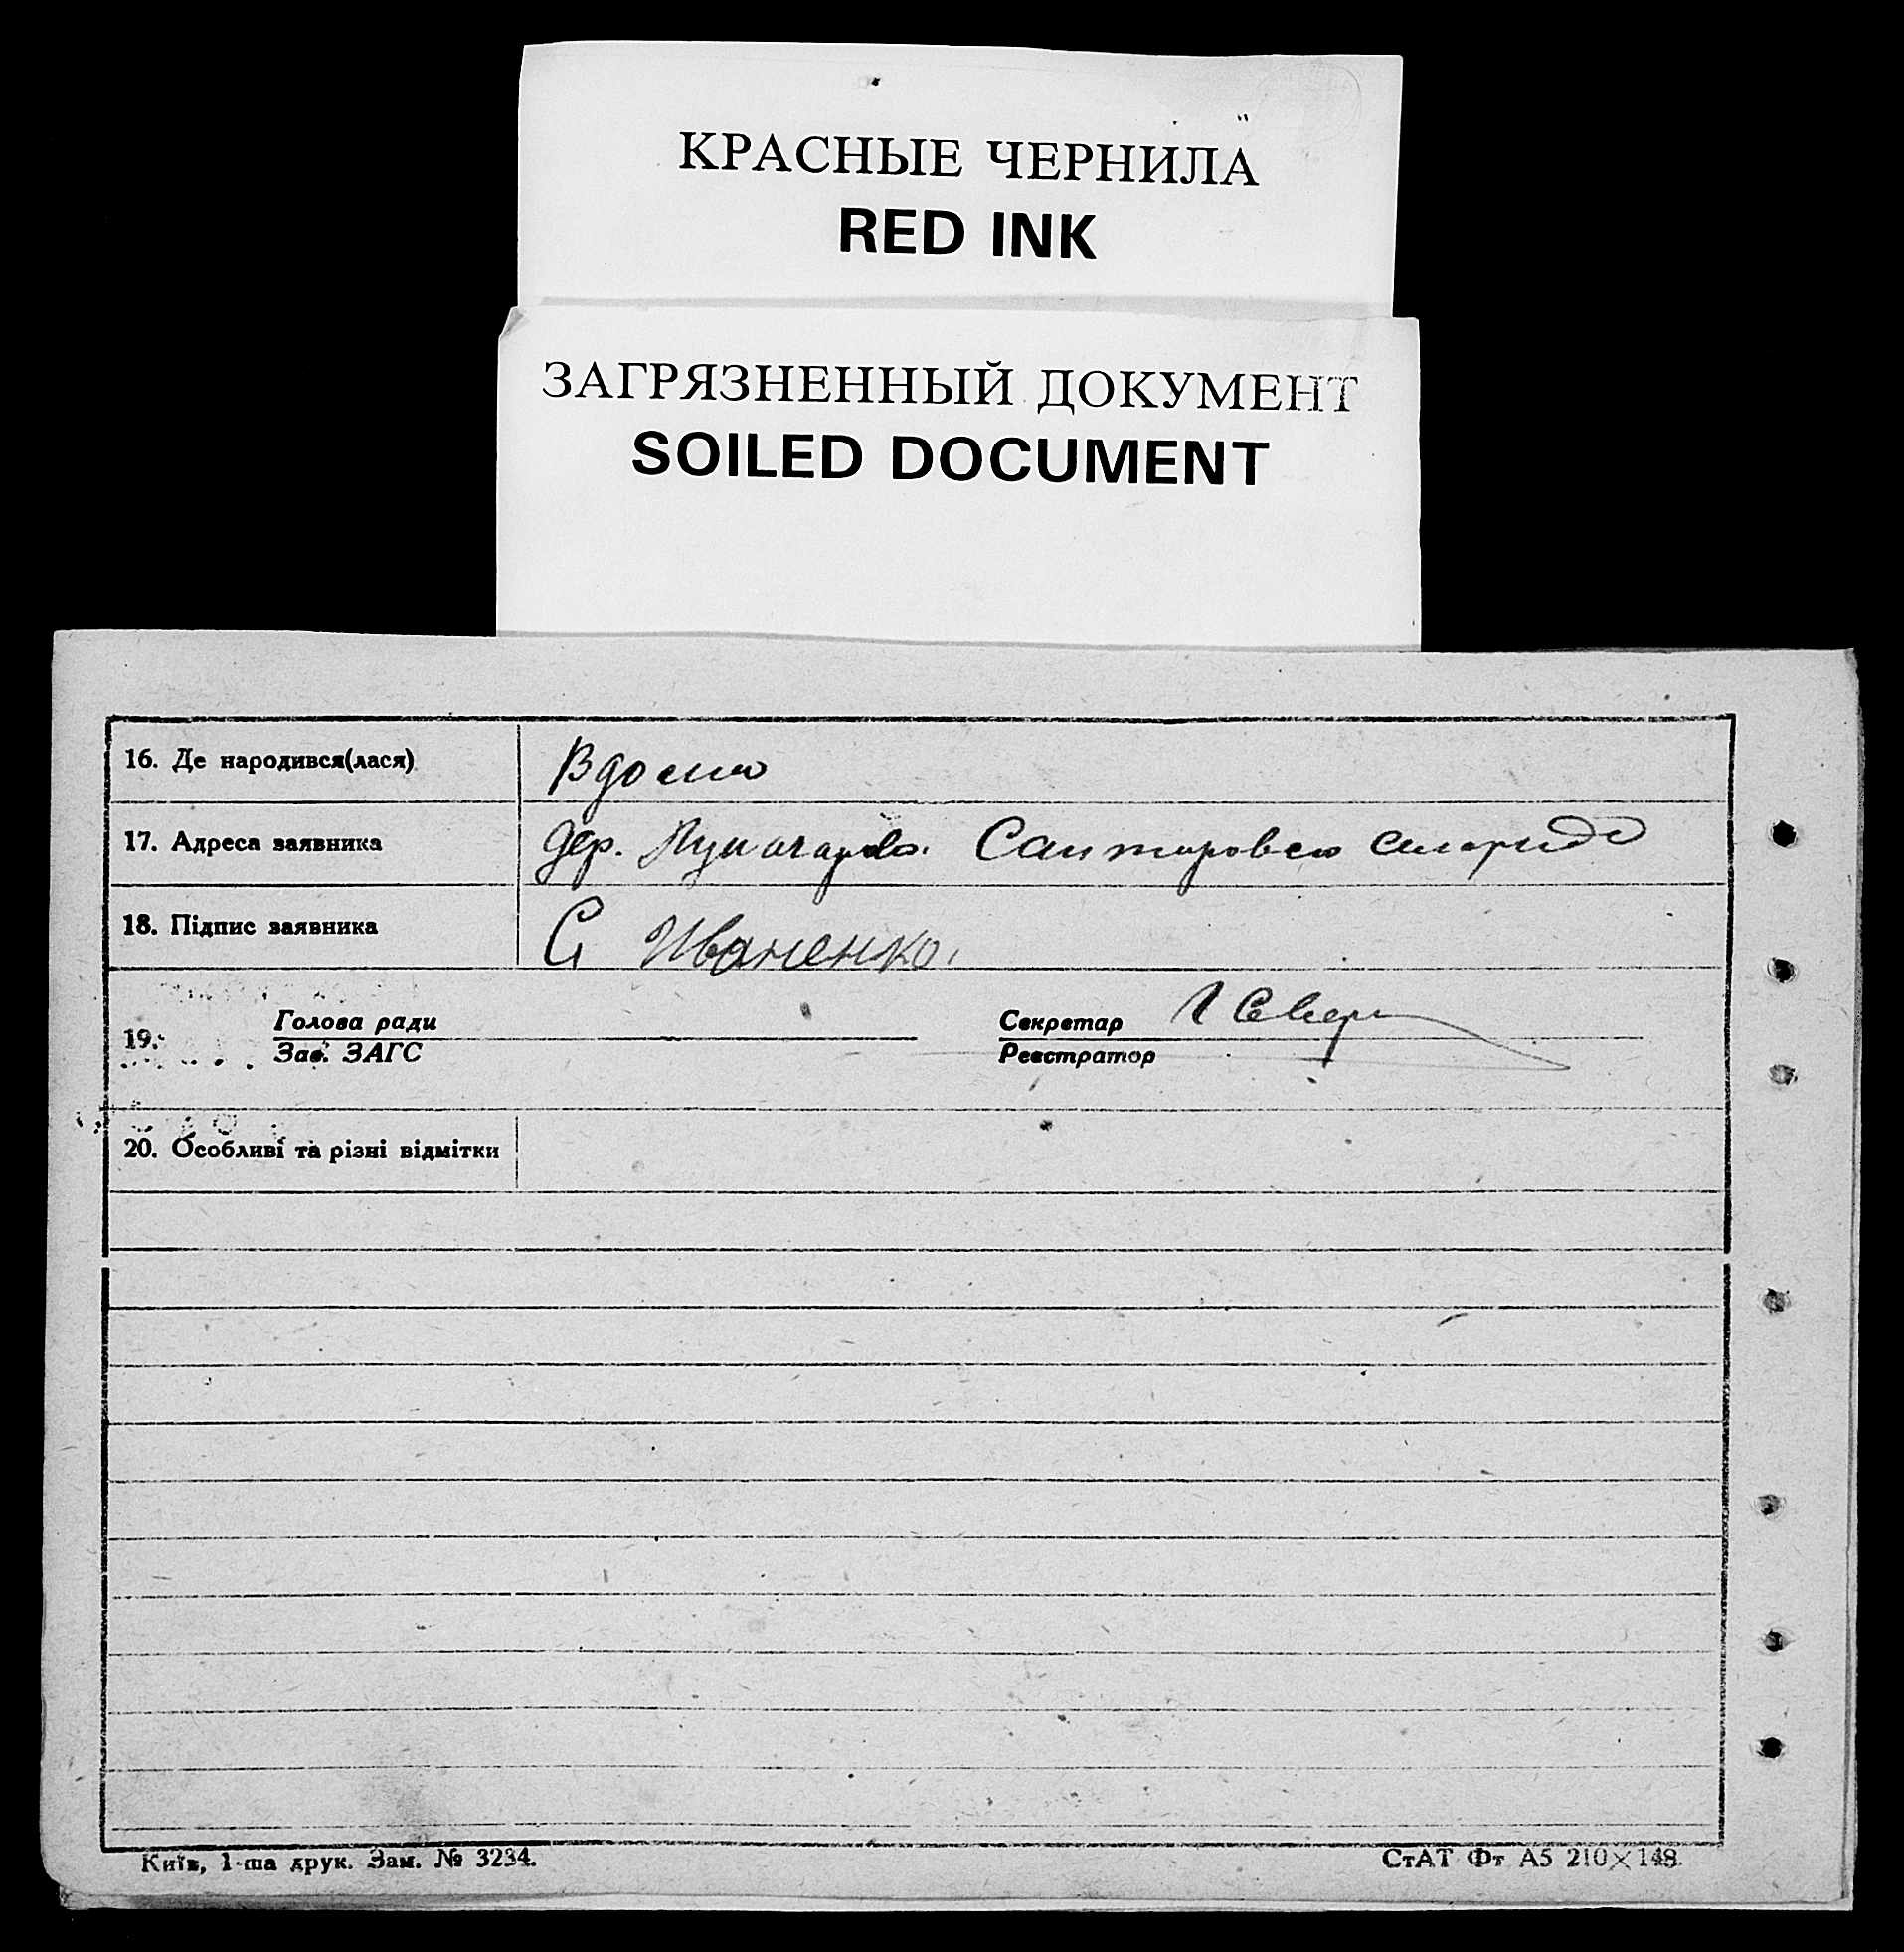 КРАСНЫЕ ЧЕРНИЛА
RED INK
ЗАГРЯЗНЕННЫЙ ДОКУМЕНТ
SOILED DOCUMENT
16. Де народився(лася) Вдома
17. Адреса заявника дер.
18. Підпис заявника С Иваненко.
19. Голова ради Секретар
Зав. ЗАГС Реєстратор
20. Особливі та різні відмітки
Київ, 1-ша друк. Зам. № 3234. СтАТ Фт А5 210×148.